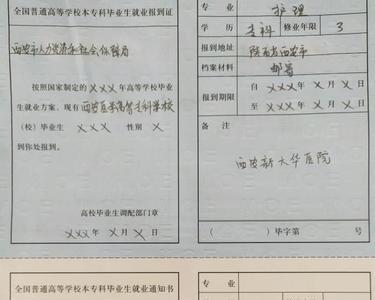 全国普通高等学校本专科毕业生就业报到证
西安市人力资源和社会保障局
按照国家制定的×××年高等学校毕业
生就业方案，现有西安医学高等专科学校
（校）毕业生 ××× 性别 ×
到你处报到。
高校毕业生调配部门章
××× 年 × 月 × 日
专业 护理
学历 专科 修业年限 3
报到地址 陕西省西安市
档案材料 邮寄
报到期限 自 ××× 年 × 月 × 日
至 ××× 年 × 月 × 日
备注
西安新大华医院
（ ）毕字第 号
全国普通高等学校本专科毕业生就业通知书
专业